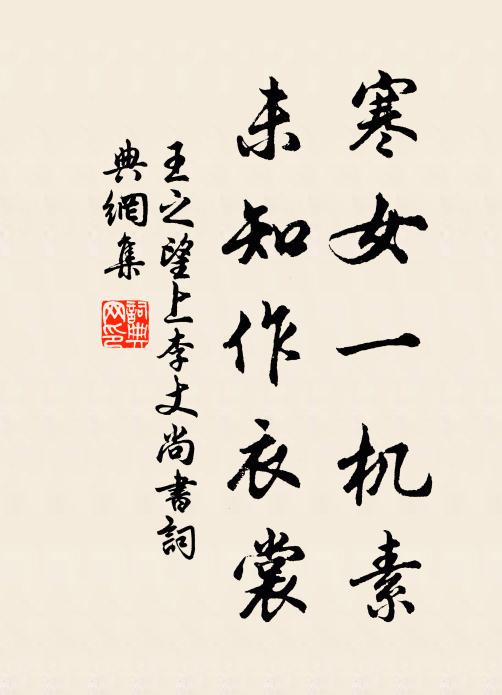 寒女一机素
未知作衣裳
王之望上李丈尚書詞
典網集
詞典网印